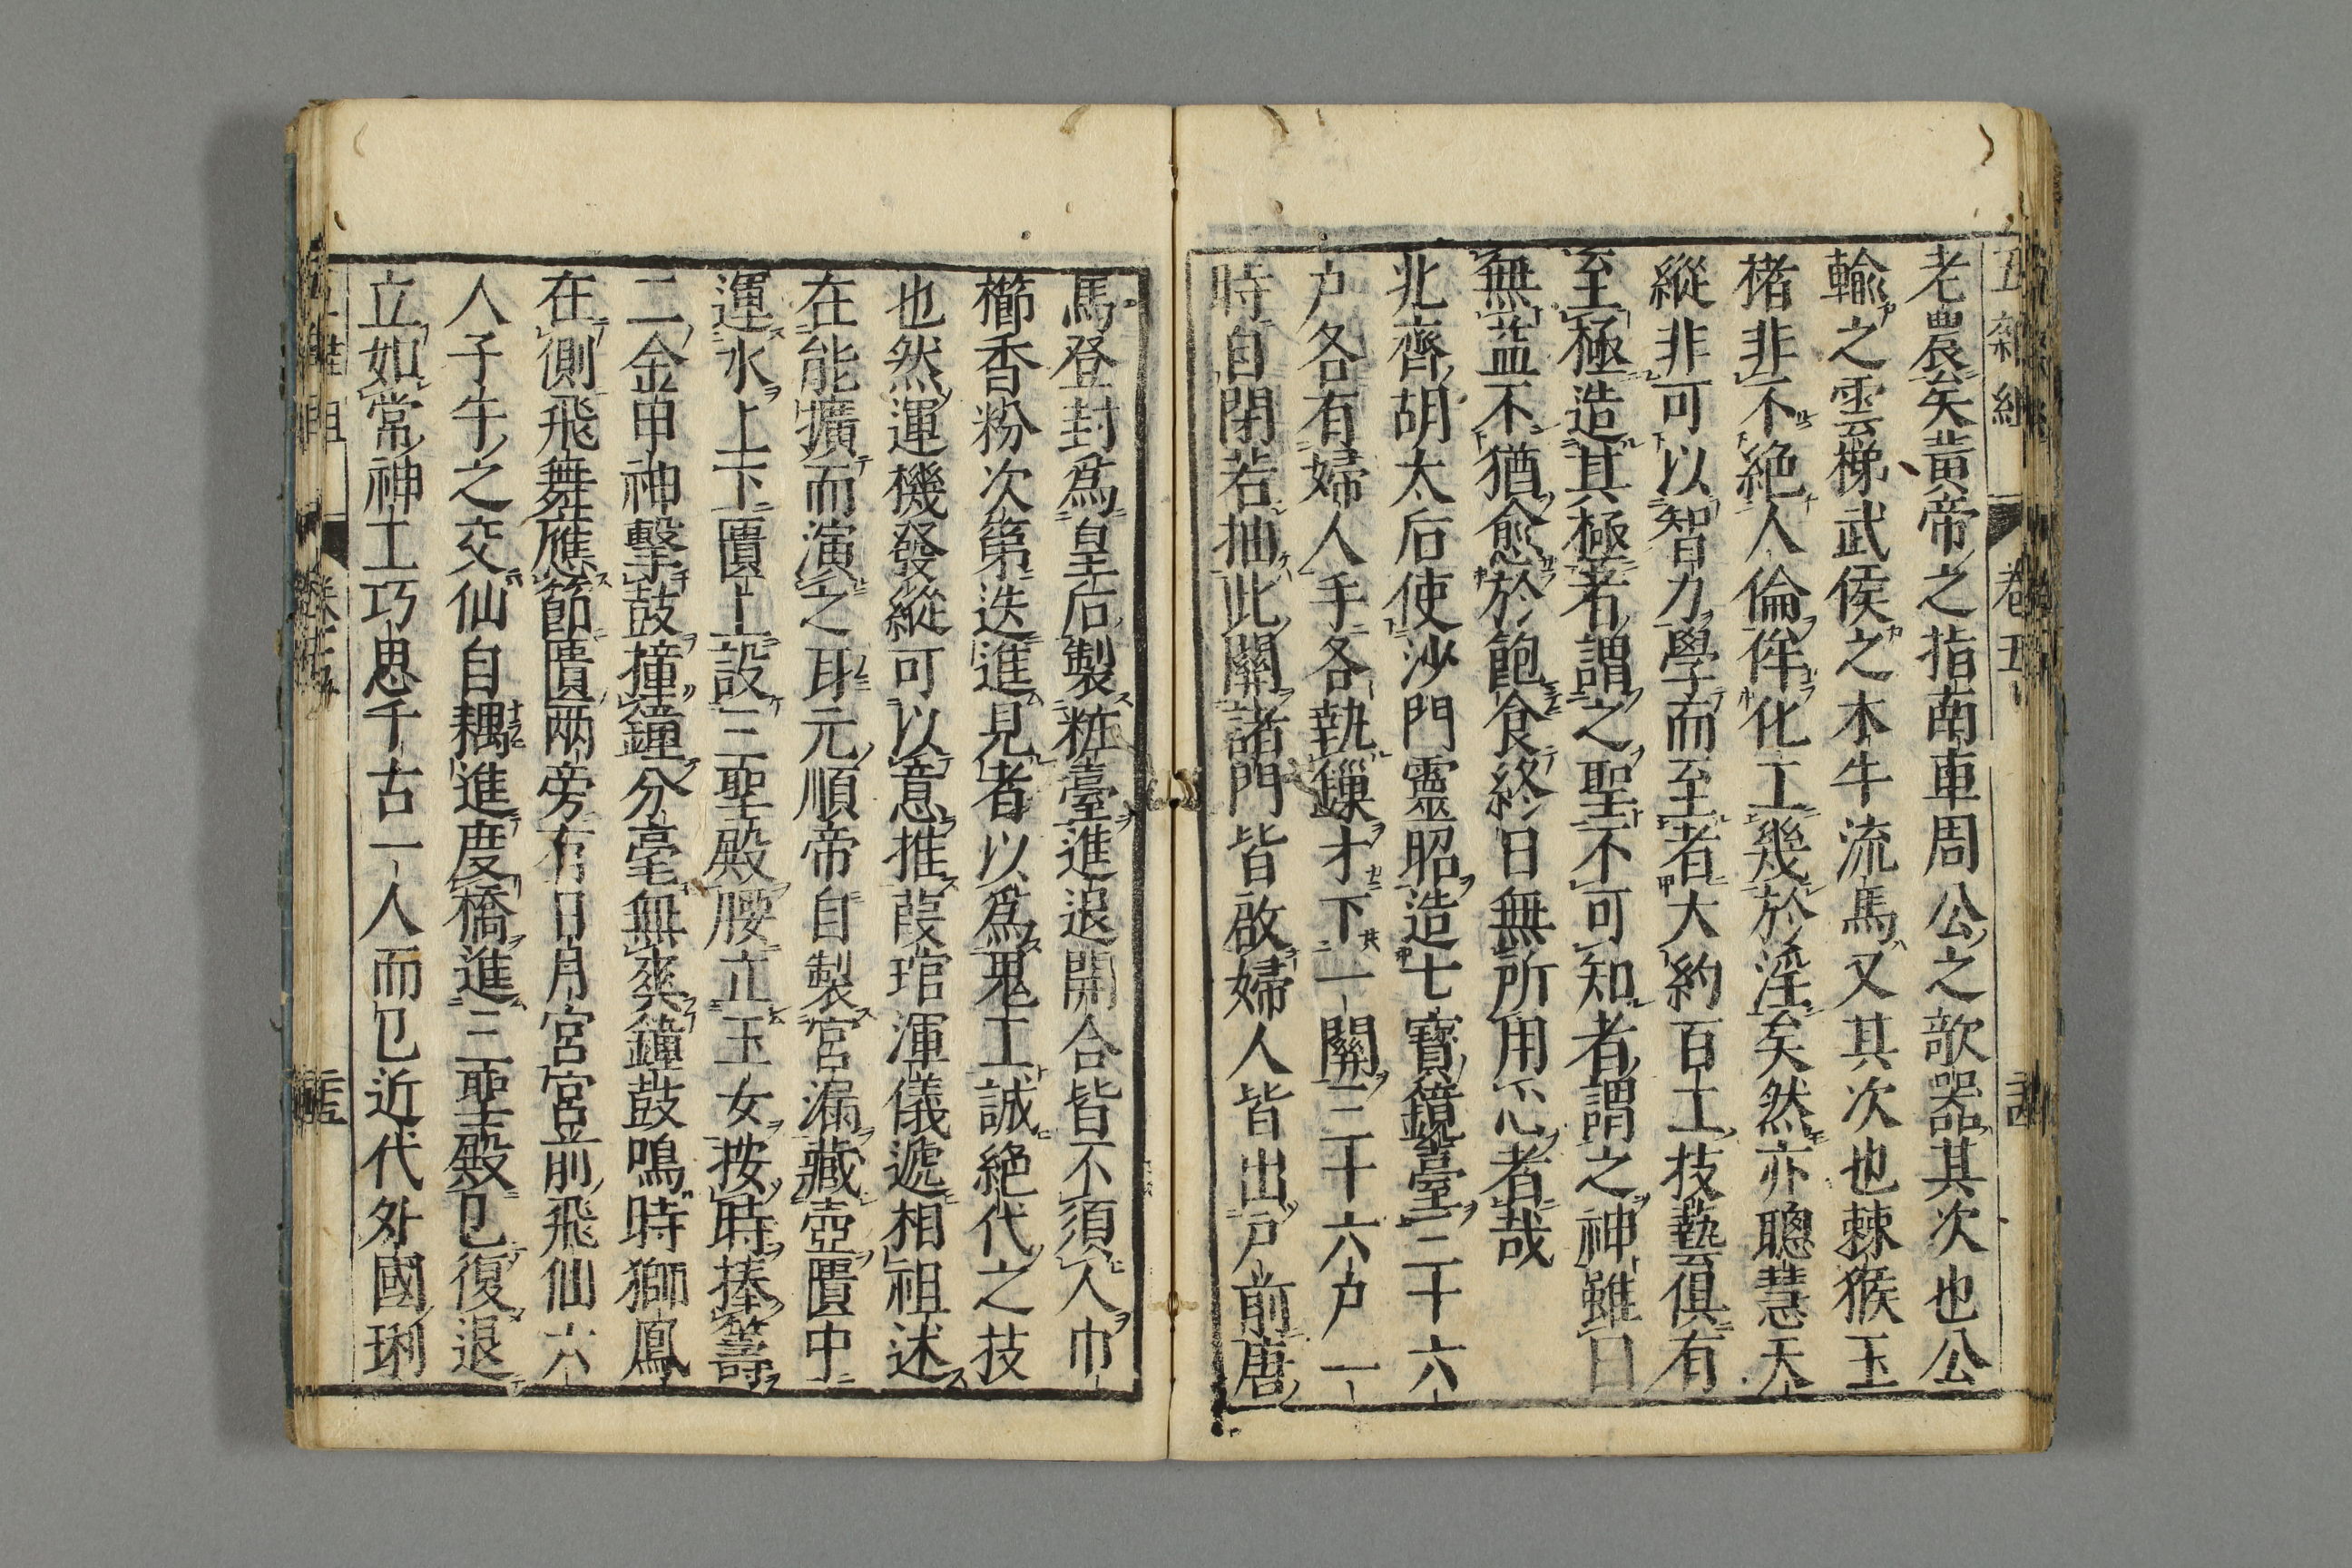 老農矣黃帝之指南車周公之欹器其次也公
輸之雲梯武侯之木牛流馬又其次也棘猴玉
楮非不絶人倫侔化工幾於淫矣然亦聰慧天
縱非可以智力學而至者大約百工技藝俱有
至極造其極者謂之聖不可知者謂之神雖曰
無益不猶愈於飽食終日無所用心者哉
北齊胡太后使沙門靈昭造七寶鏡臺三十六
戶各有婦人手各執鏁才下一關三十六戶一
時自閉若抽此關諸門皆啟婦人皆出戶前唐
馬登封爲皇后製粧臺進退開合皆不須人巾
櫛香粉次第迭進見者以爲鬼工誠絶代之技
也然運機發縱可以意推葭琯渾儀遞相祖述
在能擴而演之耳元順帝自製宮漏藏壺匱中
運水上下匱上設三聖殿腰立玉女按時捧籌
二金甲神擊鼓撞鐘分毫無爽鐘鼓鳴時獅鳳
在側飛舞應節匱兩旁有日月宮宮前飛仙六
人子午之交仙自耦進度橋進三聖殿已復退
立如常神工巧思千古一人而已近代外國琍